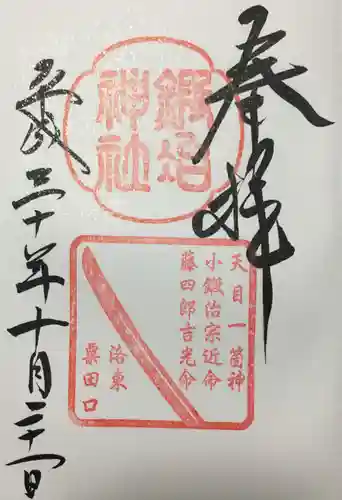 奉拝
鍛冶
神社
天目一箇神
小鍛冶宗近命
藤四郎吉光命
洛東
粟田口
平成三十年十月二十一日